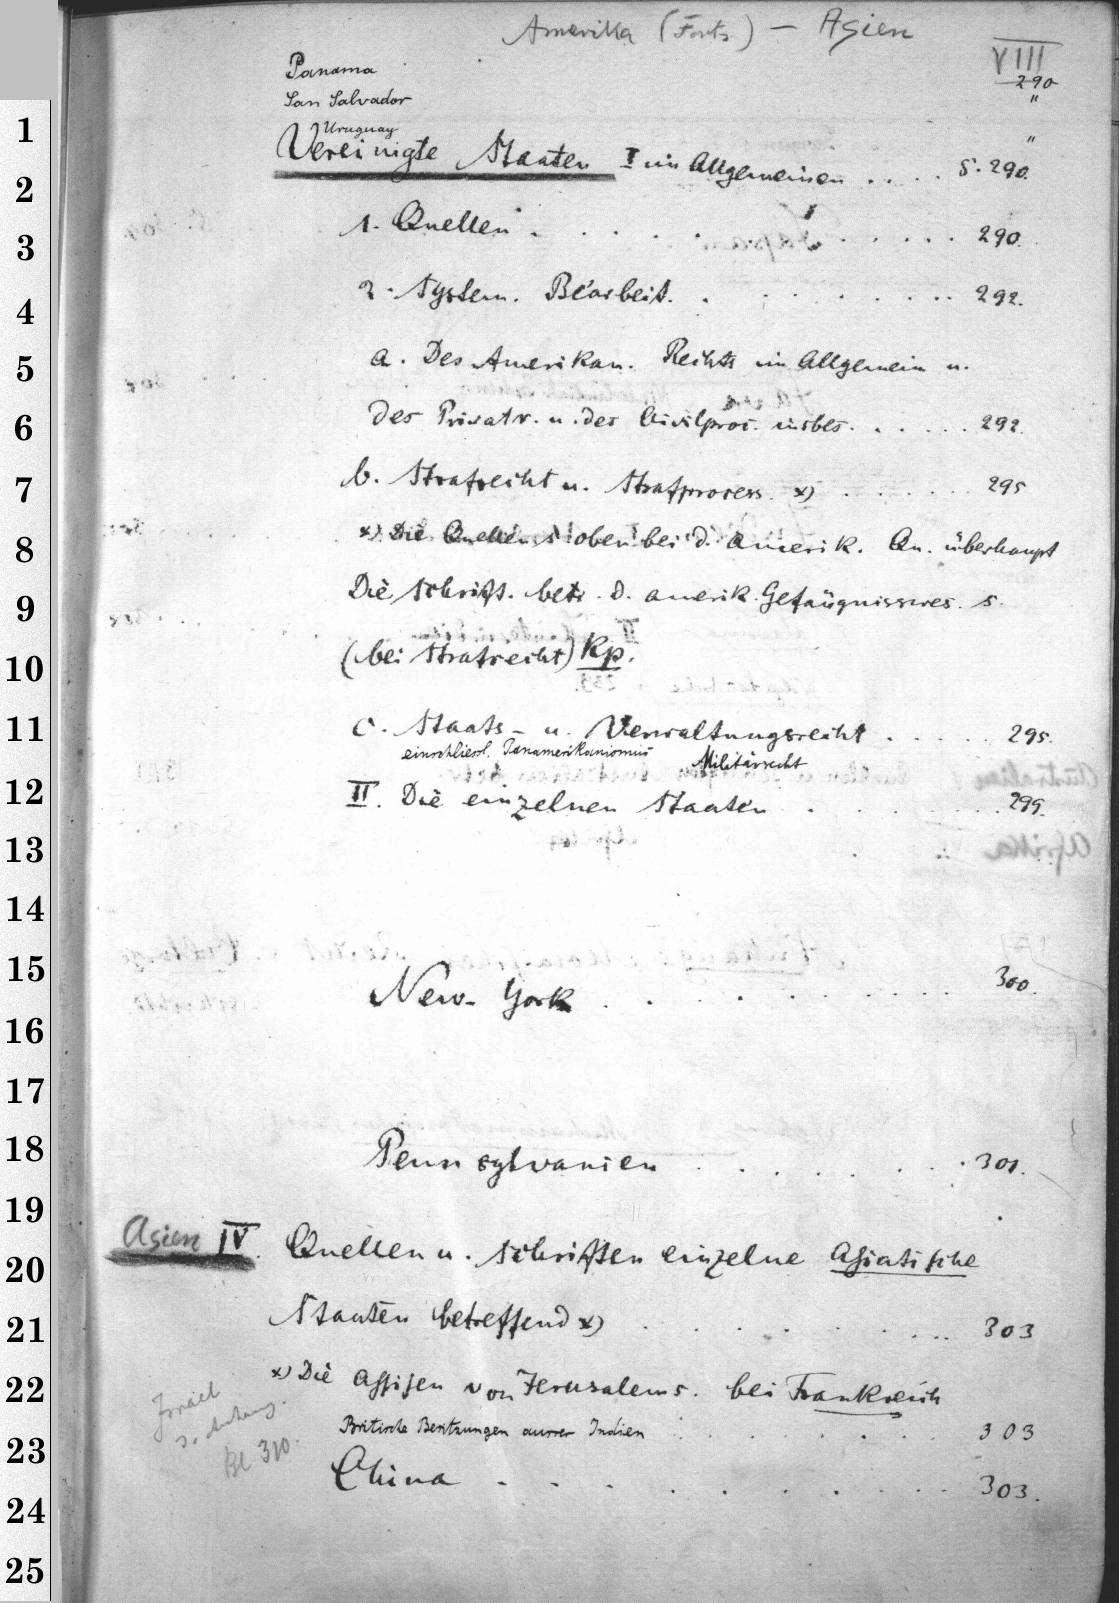 Amerikka (Forts) - Asien
VIII
Panama 290
San Salvador "
Uruguay "
Vereinigte Staaten I im Allgemeinen .... S. 290.
1. Quellen . . . . . . . . . . 290.
2. System. Bearbeit. . . . . . . . . 292.
a. Des Amerikan. Rechts im Allgemein u.
des Privatr. u. des Civilproc. insbes. . . . . . 292
b. Strafrecht u. Strafprocess. x) . . . . . . . 295
x) Die Quellen s. oben bei d. Amerik. Qu. überhaupt
Die Schrift. betr. d. amerik. Gefängnisswes. s.
(bei Strafrecht) Kp.
c. Staats- u. Verwaltungsrecht . . . . . 295.
einschliessl. Panamerikanismus Militärrecht
II. Die einzelnen Staaten . . . . . . 299.
New-York . . . . . . . . . . 300.
Pennsylvanien . . . . . . . . 301.
Asien IV. Quellen u. Schriften einzelne Asiatische
Staaten betreffend x) . . . . . . . . 303
x) Die Assisen von Jerusalem s. bei Frankreich
Britische Besitzungen ausser Indien . . . . . . 303
China . . . . . . . . . 303.
Israel
s. Anhang.
Bl. 310.
1
2
3
4
5
6
7
8
9
10
11
12
13
14
15
16
17
18
19
20
21
22
23
24
25